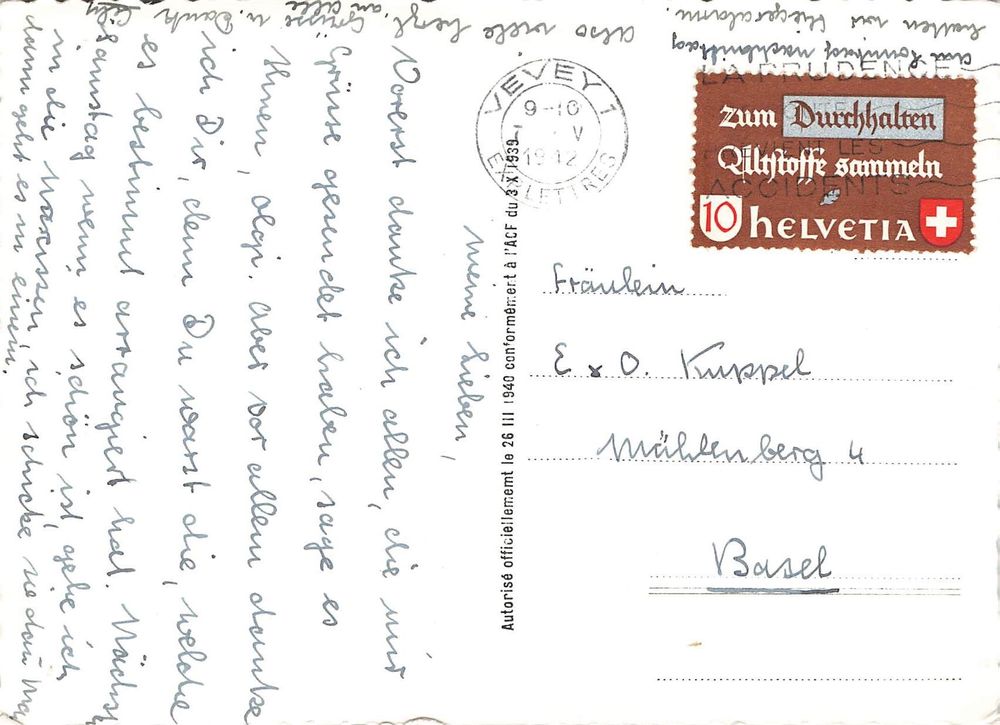 Meine Lieben,
Vorerst danke ich allen, die mir
Grüsse gesendet haben, sage es
Ihnen, Olgi. Aber vor allem danke
ich Dir, denn Du warst die, welche
es bestimmt arrangiert hat. Nächst
Samstag wenn es schön ist, gehe ich
in die Narzissen, ich schicke sie dan
dann geht es in einem.
Also viele herzl.
Grüsse u. Dank
an alle
am Sonntag nachmittag
hatten wir Fliegeralarm.
VEVEY 1
9-10
V
1942
EXP. LETTRES
LA PRUDENCE
PREVIENT LES
ACCIDENTS
zum Durchhalten
Altstoffe sammeln
10 HELVETIA
Autorisé officiellement le 26 III 1940 conformément à l'ACF du 3 X 1939
Fräulein
E x O. Kuppel
Mühlenberg 4
Basel